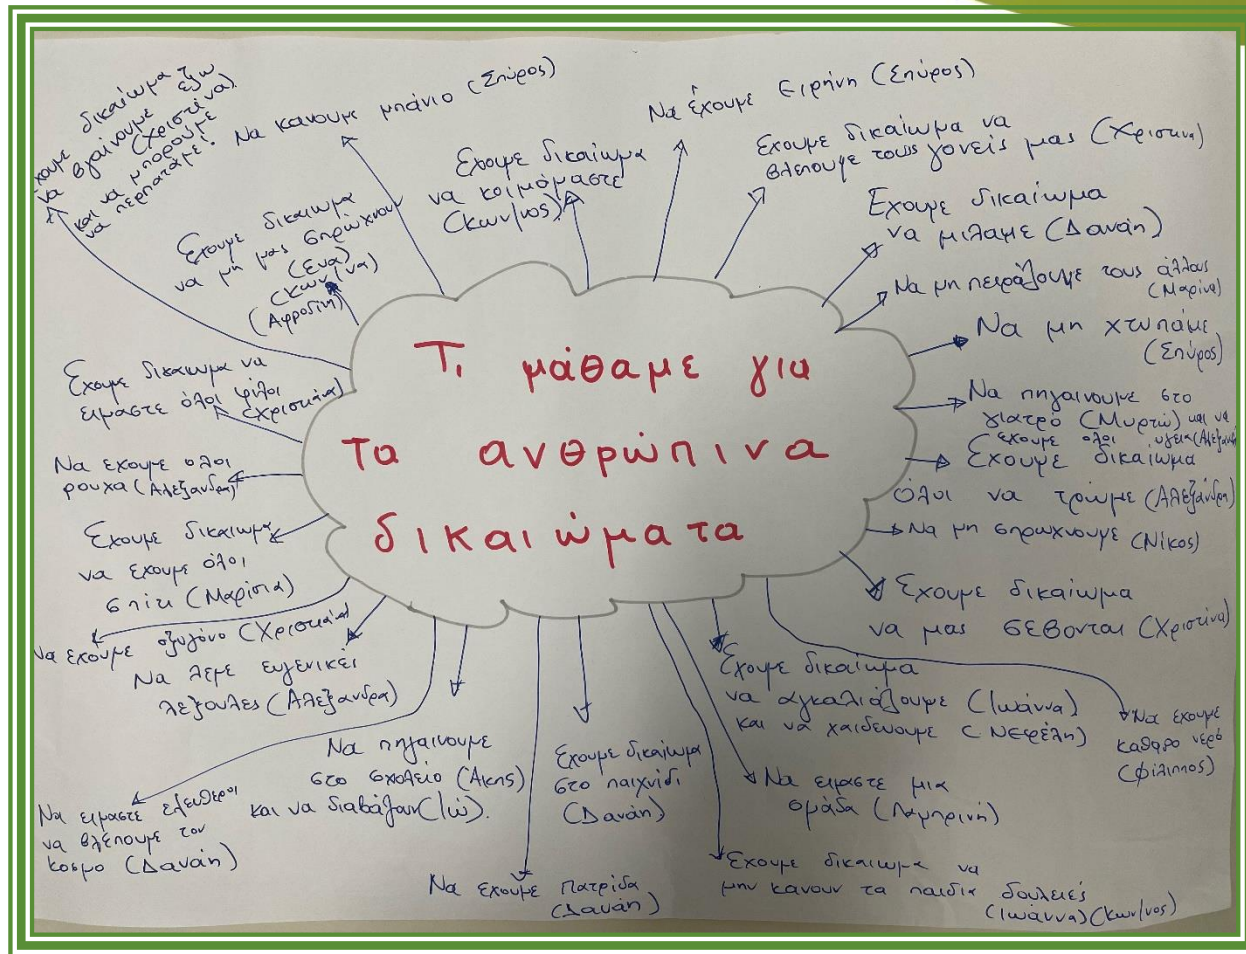 Τι μάθαμε για
τα ανθρώπινα
δικαιώματα
Έχουμε δικαίωμα
να βγαίνουμε έξω
(Χριστίνα)
και να μπορούμε
να περπατάμε!
Να κανουμε μπάνιο (Σπύρος)
Εχουμε δικαίωμα
να μη μας σπρώχνουν
(Ευα)
(Κων/να)
(Αφροδίτη)
Εχουμε δικαίωμα
να κοιμόμαστε
(Κων/νος)
Να έχουμε Ειρήνη (Σπύρος)
Εχουμε δικαίωμα να
βλεπουμε τους γονείς μας (Χριστινα)
Εχουμε δικαίωμα
να μιλαμε (Δανάη)
Να μη πειράζουμε τους άλλους
(Μαρίνα)
Να μη χτυπάμε
(Σπύρος)
Να πηγαινουμε στο
γιατρό (Μυρτώ) και να
εχουμε ολοι υγεια (Αλεξανδρα)
Εχουμε δικαίωμα
όλοι να τρώμε (Αλεξάνδρα)
Να μη σπρωχνουμε (Νίκος)
Εχουμε δικαίωμα
να μας σεβονται (Χριστίνα)
Να εχουμε
καθαρο νερό
(Φίλιππος)
Εχουμε δικαίωμα
να αγκαλιάζουμε (Ιωάννα)
και να χαιδευουμε (Νεφέλη)
Να ειμαστε μια
ομάδα (Λαμπρινή)
Εχουμε δικαιωμα να
μην κανουν τα παιδια δουλειές
(Ιωάννα) (Κων/νος)
Εχουμε δικαίωμα
στο παιχνίδι
(Δανάη)
Να εχουμε Πατρίδα
(Δανάη)
Να πηγαινουμε
στο σχολείο (Ακης)
και να διαβάζουν (Ιώ).
Να ειμαστε ελευθεροι
να βλεπουμε τον
κοσμο (Δανάη)
Να λεμε ευγενικες
λεξουλες (Αλεξανδρα)
Να εχουμε οξυγόνο
Εχουμε δικαίωμα
να εχουμε όλοι
σπίτι (Μαρίσια)
Να εχουμε ολοι
ρουχα (Αλεξανδρα)
Εχουμε δικαιωμα να
ειμαστε όλοι φίλοι